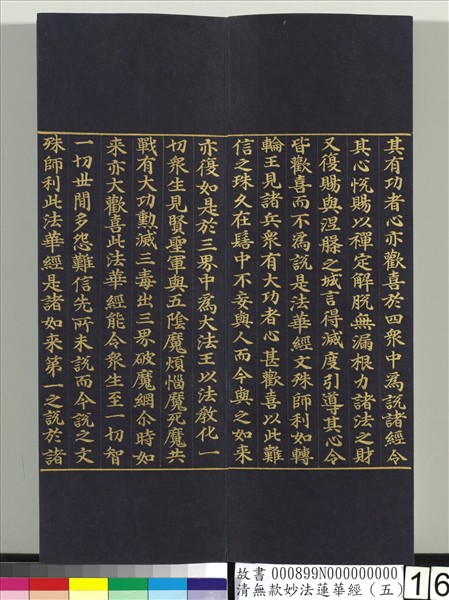 其有功者心亦歡喜於四衆中為說諸經令
其心恱賜以禪定解脫無漏根力諸法之財
又復賜與涅槃之城言得滅度引導其心令
皆歡喜而不為說是法華經文殊師利如轉
輪王見諸兵衆有大功者心甚歡喜以此難
信之珠久在髻中不妄與人而今與之如来
亦復如是於三界中為大法王以法教化一
切衆生見賢聖軍與五陰魔煩惱魔死魔共
戰有大功勳滅三毒出三界破魔網尒時如
来亦大歡喜此法華經能令衆生至一切智
一切世閒多怨難信先所未說而今說之文
殊師利此法華經是諸如来第一之說於諸
故書 000899N000000000
清無款妙法蓮華經（五） 16